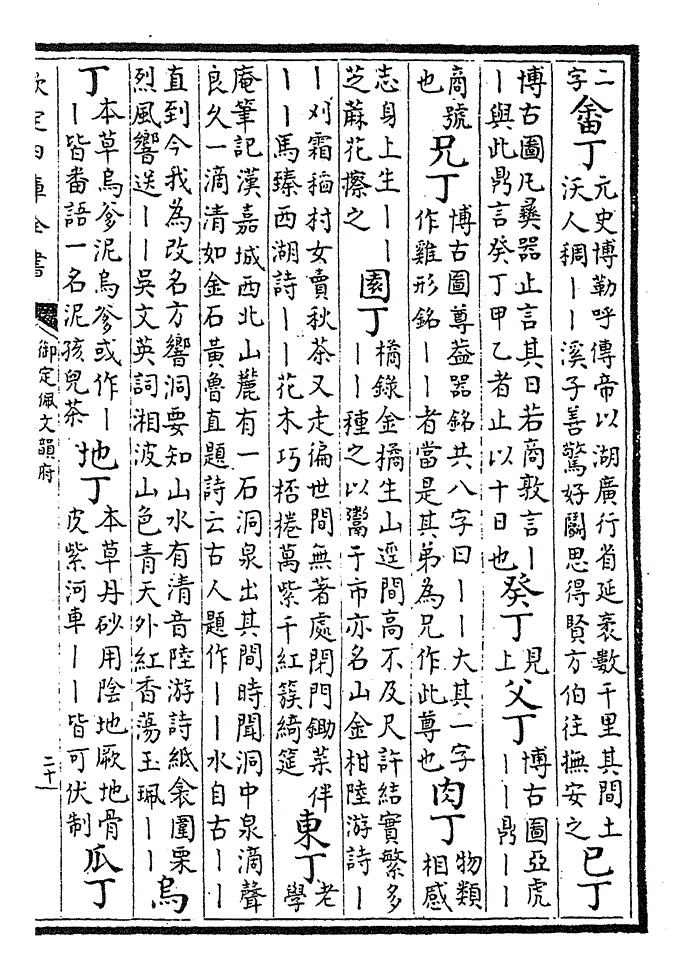 二字畬丁元史博勒呼傳帝以湖廣行省延袤數千里其間土沃人稠丨丨溪子善驚好鬬思得賢方伯往撫安之已丁
博古圖凡彝器止言其日若商敦言丨丨與此鼎言癸丁甲乙者止以十日也癸丁見上父丁博古圖亞虎丨丨鼎丨丨
商號也兄丁博古圖尊葢器銘共八字曰丨丨大其一字作雞形銘丨丨者當是其弟為兄作此尊也肉丁物類相感
志身上生丨丨芝蔴花擦之園丁橘錄金橘生山逕間高不及尺許結實繁多丨丨種之以鬻于市亦名山金柑陸游詩丨
丨刈霜稻村女賣秋茶又走徧世間無著處閉門鋤菜伴丨丨馬臻西湖詩丨丨花木巧栝棬萬紫千紅簇綺筵東丁老學
庵筆記漢嘉城西北山麓有一石洞泉出其間時聞洞中泉滴聲良久一滴清如金石黃魯直題詩云古人題作丨丨水自古丨丨
直到今我為改名方響洞要知山水有清音陸游詩紙衾圍栗烈風響送丨丨吳文英詞湘波山色青天外紅香蕩玉珮丨丨烏
丁本草烏爹泥烏爹或作丨丨皆番語一名泥孩兒茶地丁本草丹砂用陰地厥地骨皮紫河車丨丨皆可伏制瓜丁
欽定四庫全書 御定佩文韻府 二十